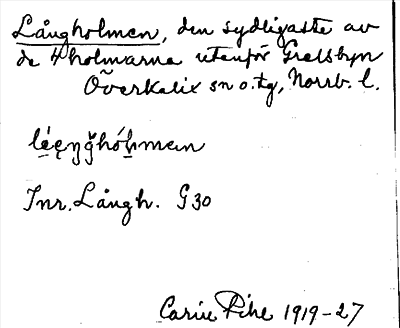 Långholmen, den sydligaste av
de 4 holmarna utanför Grelsbyn
Överkalix sn o. tg, Norrb. l.
Jnr. Långh. G30
Carin Pihl 1919-27